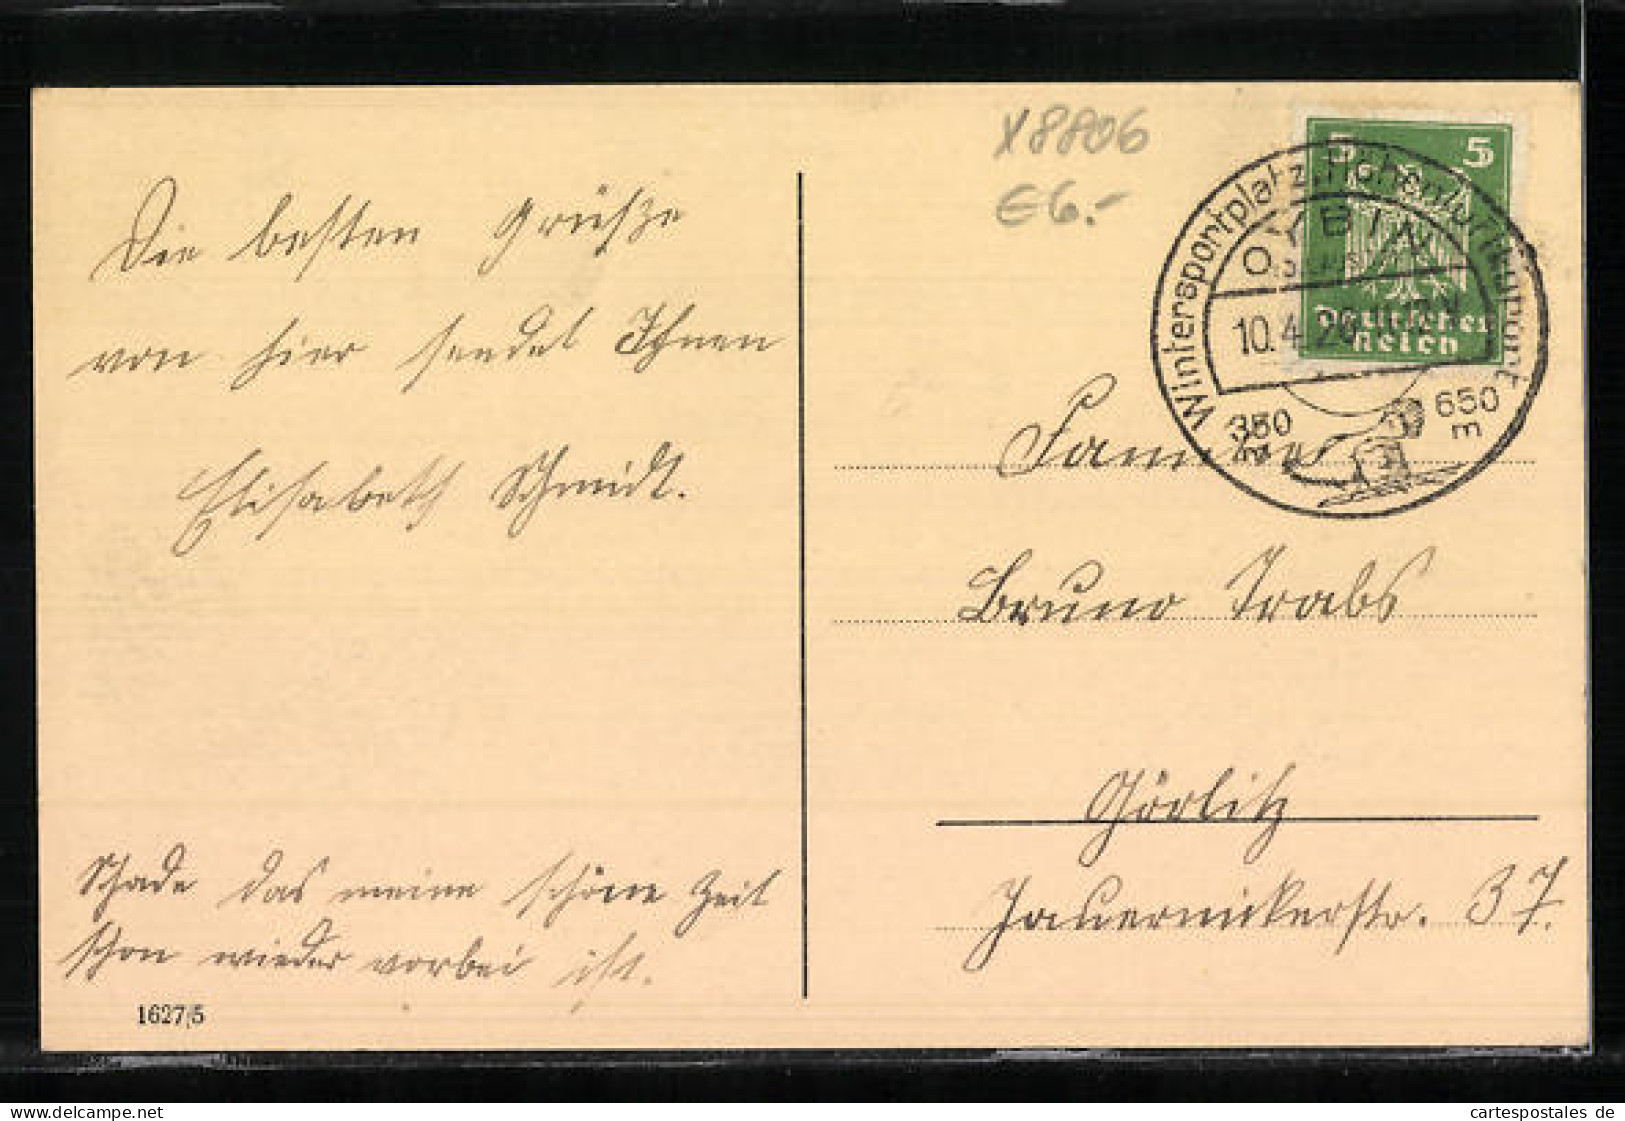 Die besten Grüße
von hier sendet Ihnen
Elisabeth Schmidt.
Schade das meine schöne Zeit
schon wieder vorbei ist.
1627/5
X8806
€6.-
5 5
Deutsches
Reich
Wintersportplatz, Höhenluftkurort
OYBIN
10.4.26
350 m
650 m
Familie
Bruno Trabs
Görlitz
Jauernickerstr. 37.
www.delcampe.net
cartespostales de